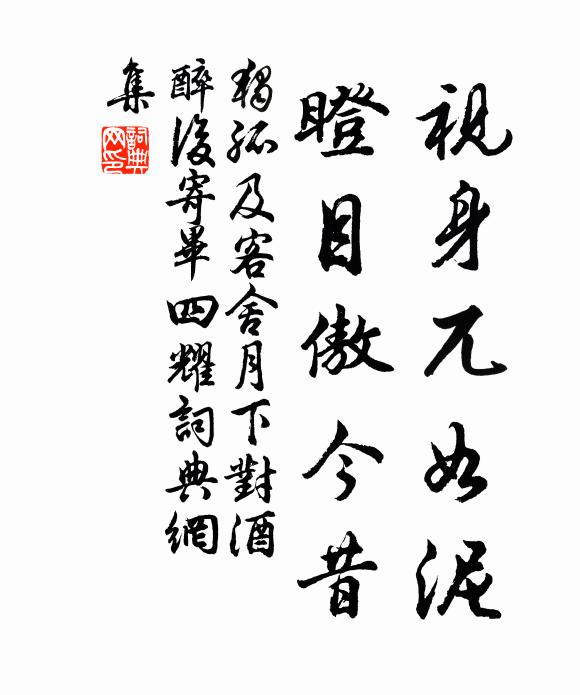 視身兀如泥
瞪目傲今昔
獨孤及客舍月下對酒
醉後寄畢四耀詞典網
集
詞典
网印